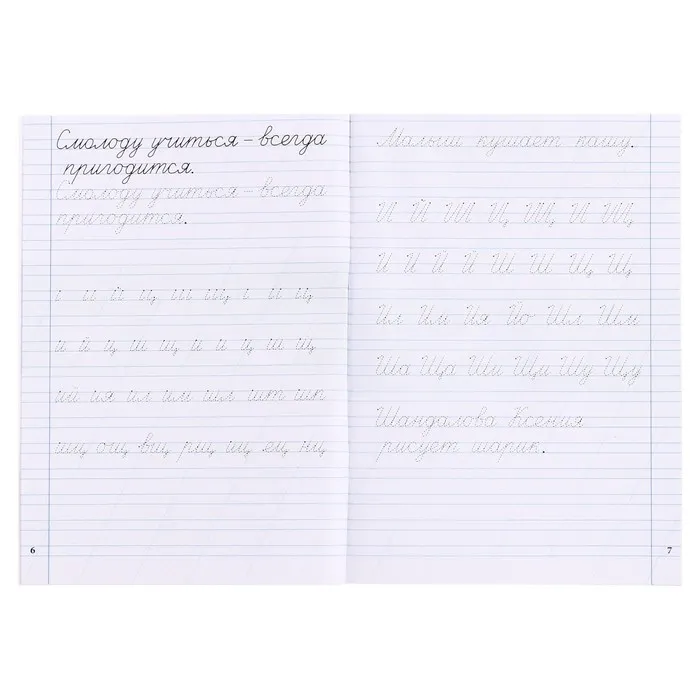 Смолоду учиться – всегда
пригодится.
Смолоду учиться – всегда
пригодится.
и й ц ш щ и ц
и й ц ш щ и и ц ш щ
ий ия ил им шл шт шк
ощ вщ рщ ищ ец нц
6
Малыш кушает кашу.
И Й Ш Ц Щ И Щ
И И Й Й Ш Ш Щ Щ
Ил Им Ия Йо Шл Шм
Ша Ща Ши Щи Шу Щу
Шандалова Ксения
рисует шарик.
7